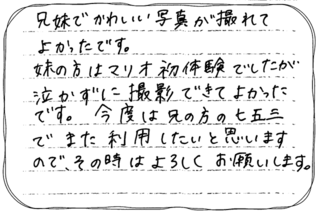 兄妹でかわいい写真が撮れて
よかったです。
妹の方はマリオ初体験でしたが
泣かずに撮影できてよかった
です。 今度は兄の方の七五三
でまた利用したいと思います
ので、その時はよろしくお願いします。